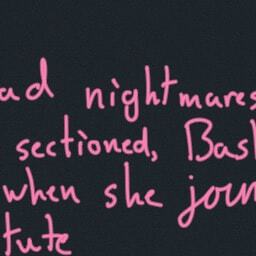 ad nightmares
sectioned, Bas
when she jour
tute